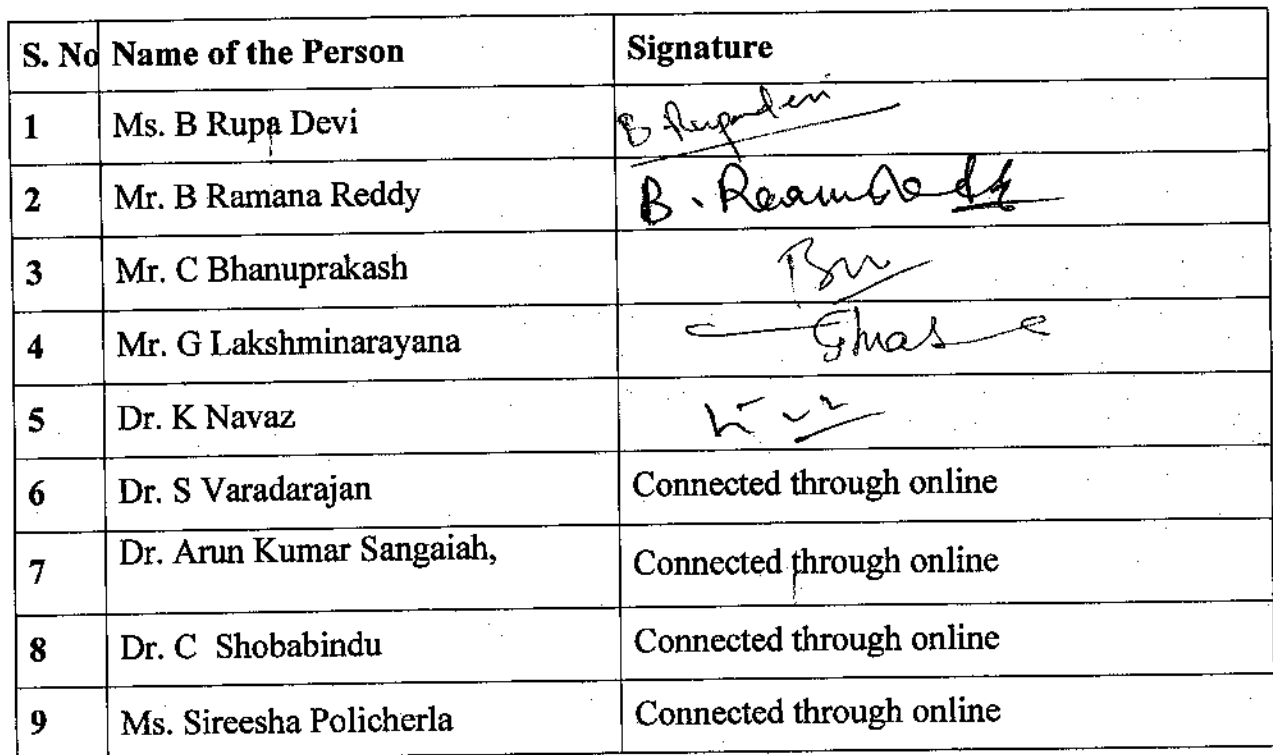 S. No Name of the Person Signature
1 Ms. B Rupa Devi B Rupadevi
2 Mr. B Ramana Reddy B. Ramana Reddy
3 Mr. C Bhanuprakash
4 Mr. G Lakshminarayana
5 Dr. K Navaz
6 Dr. S Varadarajan Connected through online
7 Dr. Arun Kumar Sangaiah, Connected through online
8 Dr. C Shobabindu Connected through online
9 Ms. Sireesha Policherla Connected through online